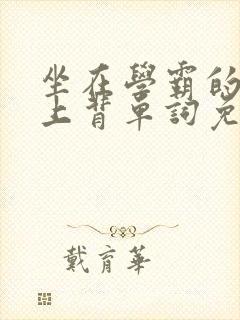 坐在學霸的
上背單詞免
戴育華